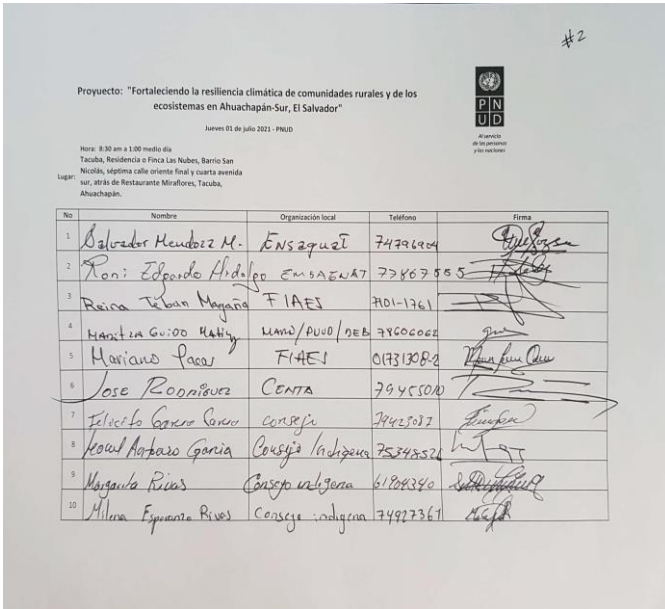 #2
Proyuecto: "Fortaleciendo la resiliencia climática de comunidades rurales y de los
ecosistemas en Ahuachapán-Sur, El Salvador"
Jueves 01 de julio 2021 - PNUD
P N
U D
Al servicio
de las personas
y las naciones
Hora: 8:30 am a 1:00 medio día
Tacuba, Residencia o Finca Las Nubes, Barrio San
Nicolás, séptima calle oriente final y cuarta avenida
Lugar: sur, atrás de Restaurante Miraflores, Tacuba,
Ahuachapán.
No Nombre Organización local Teléfono Firma
1 Salvador Mendoza M. 74796904
2 Roni Edgardo Hidalgo EMSAENAT 77867555
3 Reina Teban Magaña FIAES 7101-1761
4 Maritza Guido 78606062
5 Mariano Pacas FIAES 01731308-2
6 Jose Rodriguez CENTA 79455010
7 consejo 79423087
8 Garcia Consejo Indigena 75348526
9 Margarita Rivas Consejo indigena 61904340
10 Milena Esperanza Rivas Consejo indigena 74927361